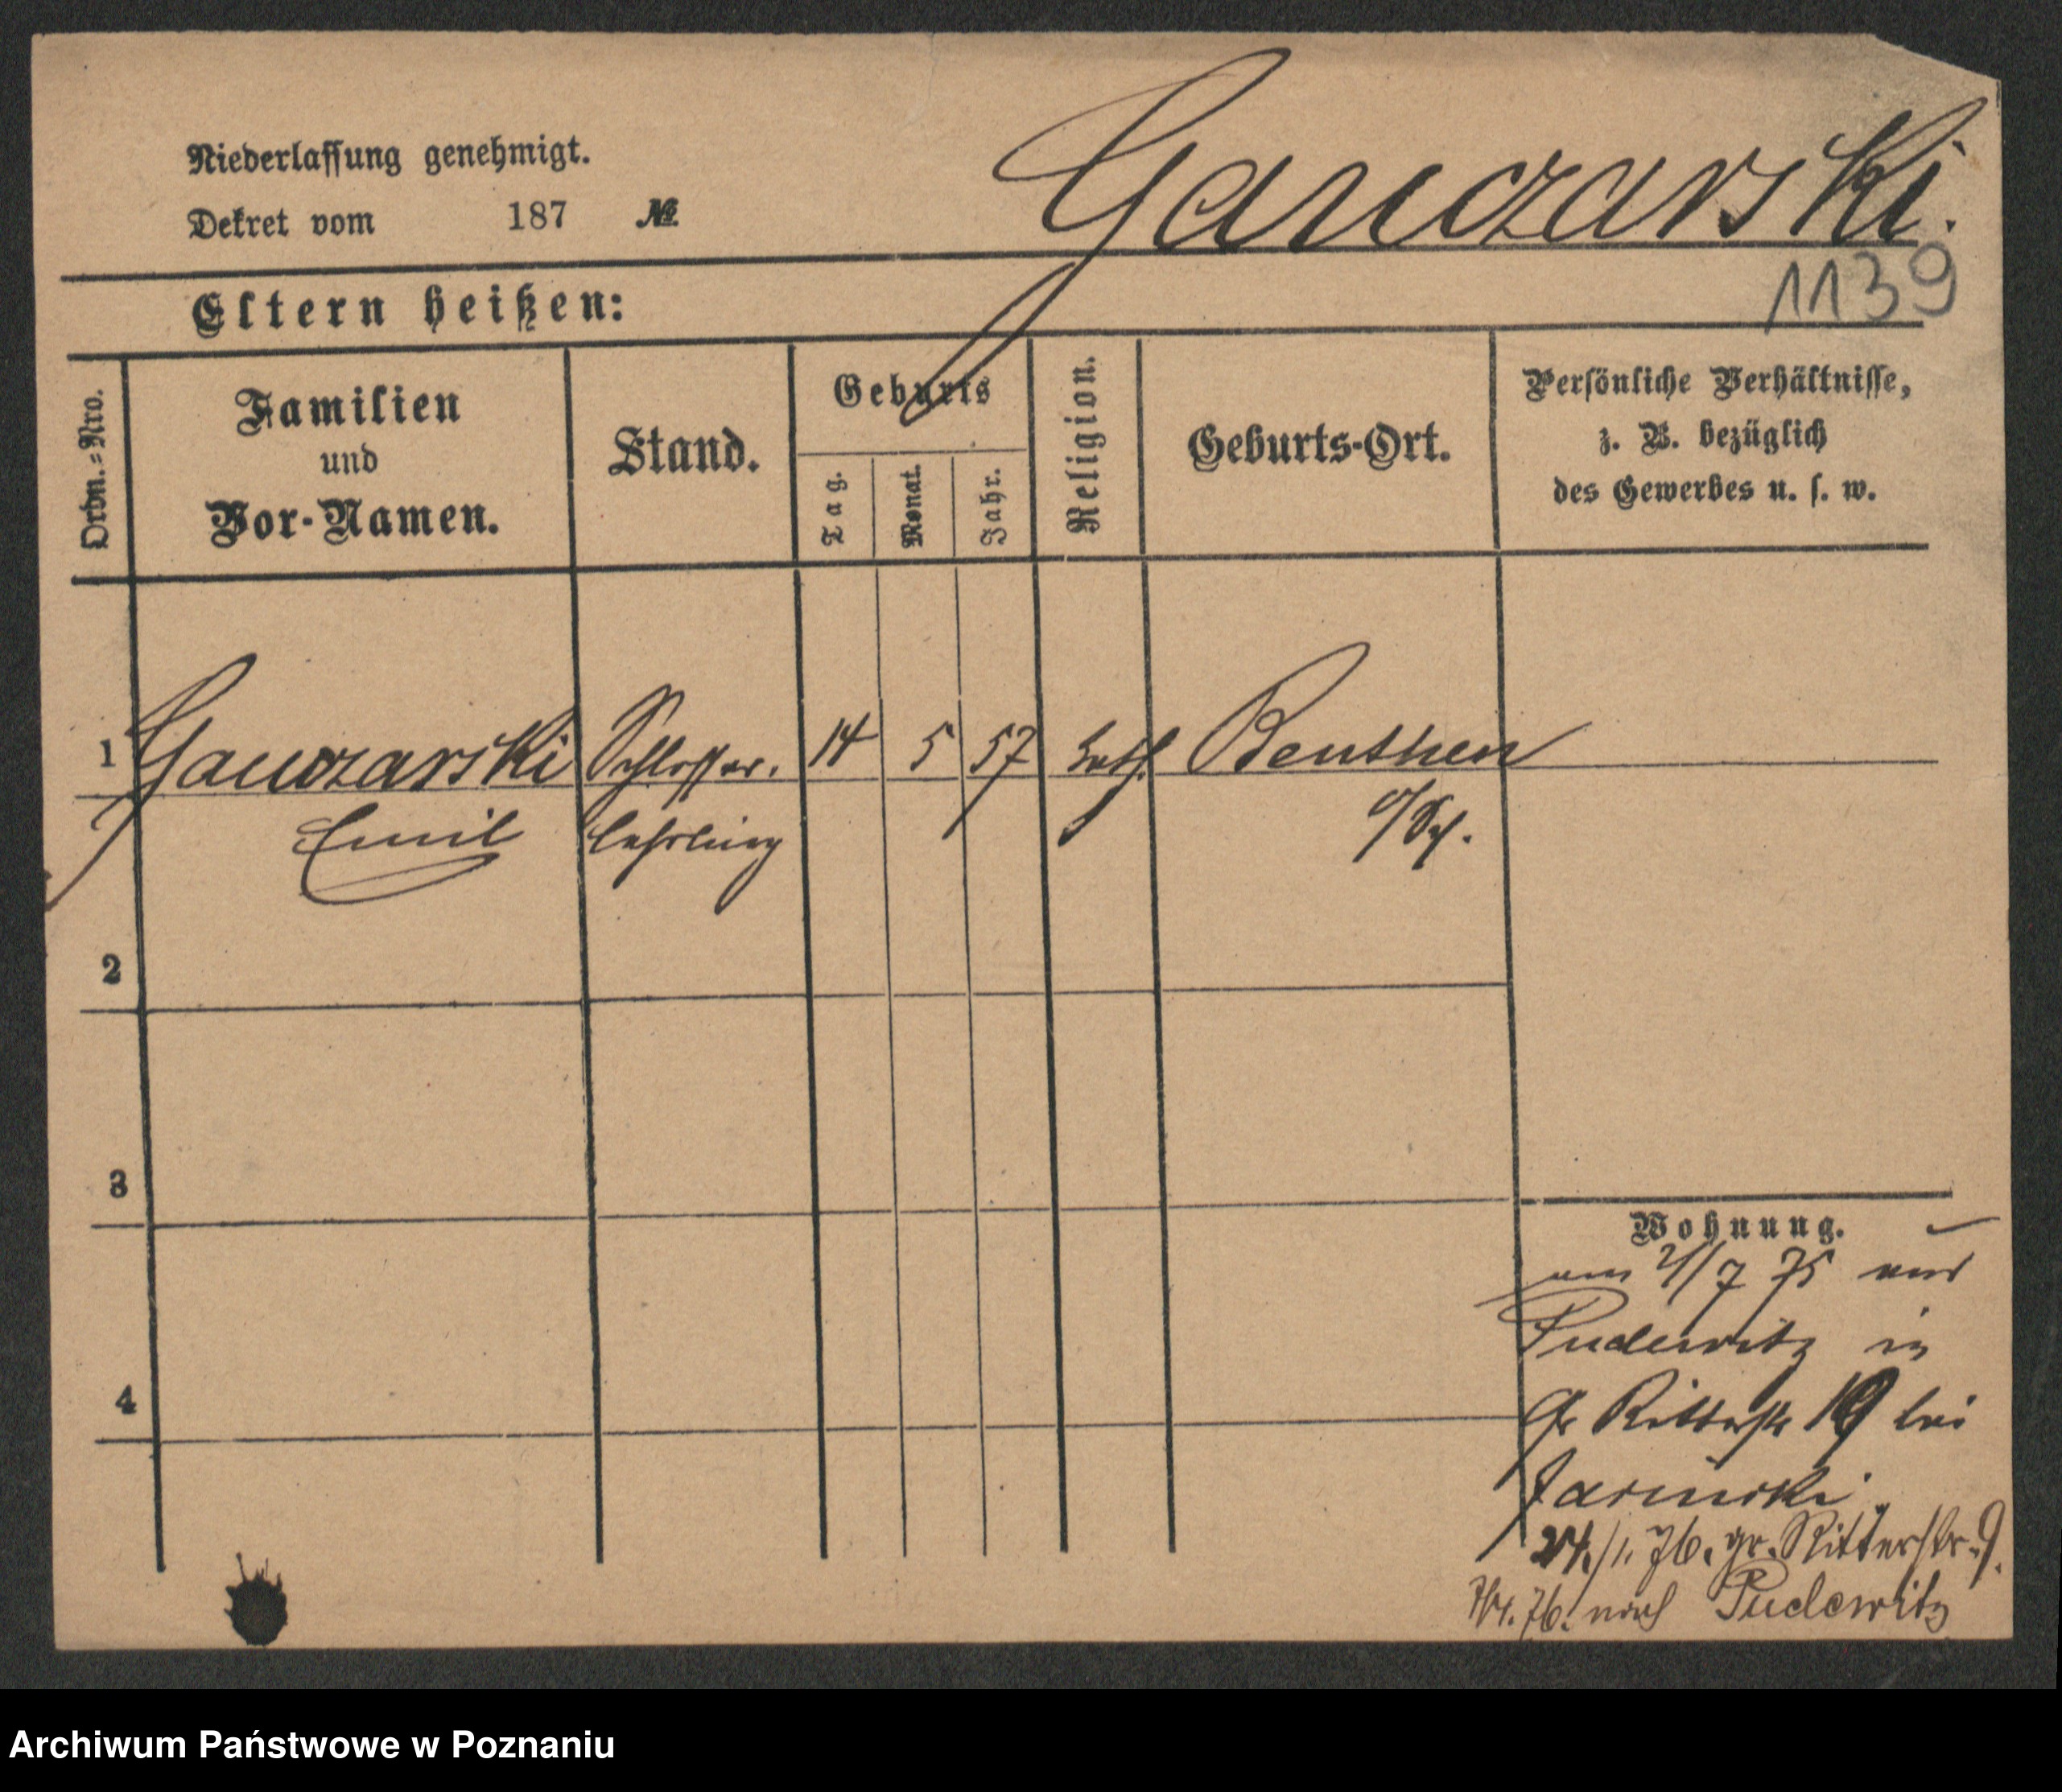 Niederlassung genehmigt.
Dekret vom 187 №
Ganczarski.
1139
Eltern heißen:
Ordn.-Nro.
Familien
und
Vor-Namen.
Stand.
Geburts
Tag.
Monat.
Jahr.
Religion.
Geburts-Ort.
Persönliche Verhältnisse,
z. B. bezüglich
des Gewerbes u. s. w.
1 Ganczarski Schlosser. 14 5 57 kath. Beuthen
Emil lehrling o/Sch.
2
3
4
Wohnung.
am 2/7 75 aus
Pudewitz in
Gr Ritterstr 19 bei
24./1. 76. gr. Ritterstr. 9.
76. nach Pudewitz
Archiwum Państwowe w Poznaniu